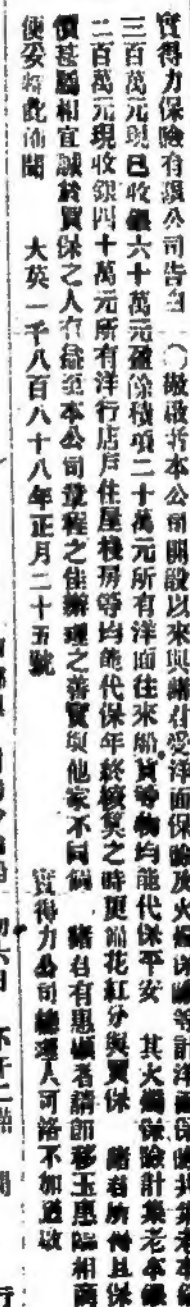 寶得力保險有限公司告白 〇啟者本公司開設以來與諸君受洋面保險及火燭保險等計洋面保險共集老本銀
三百萬元現已收銀六十萬元盈餘積項二十萬元所有洋面往來船貨等物均能代保平安 其火燭保險計集老本銀
二百萬元現收銀四十萬元所有洋行店戶住屋棧房等均能代保年終核算之時更加花紅分與買保 諸君所付且保
價甚廉相宜誠於買保之人有益至本公司章程之佳辦理之善實與他家不同倘 諸君有惠顧者請即移玉惠臨相商
便妥特此佈聞 大英一千八百八十八年正月二十五號 寶得力公司總理人可洛不加立啟